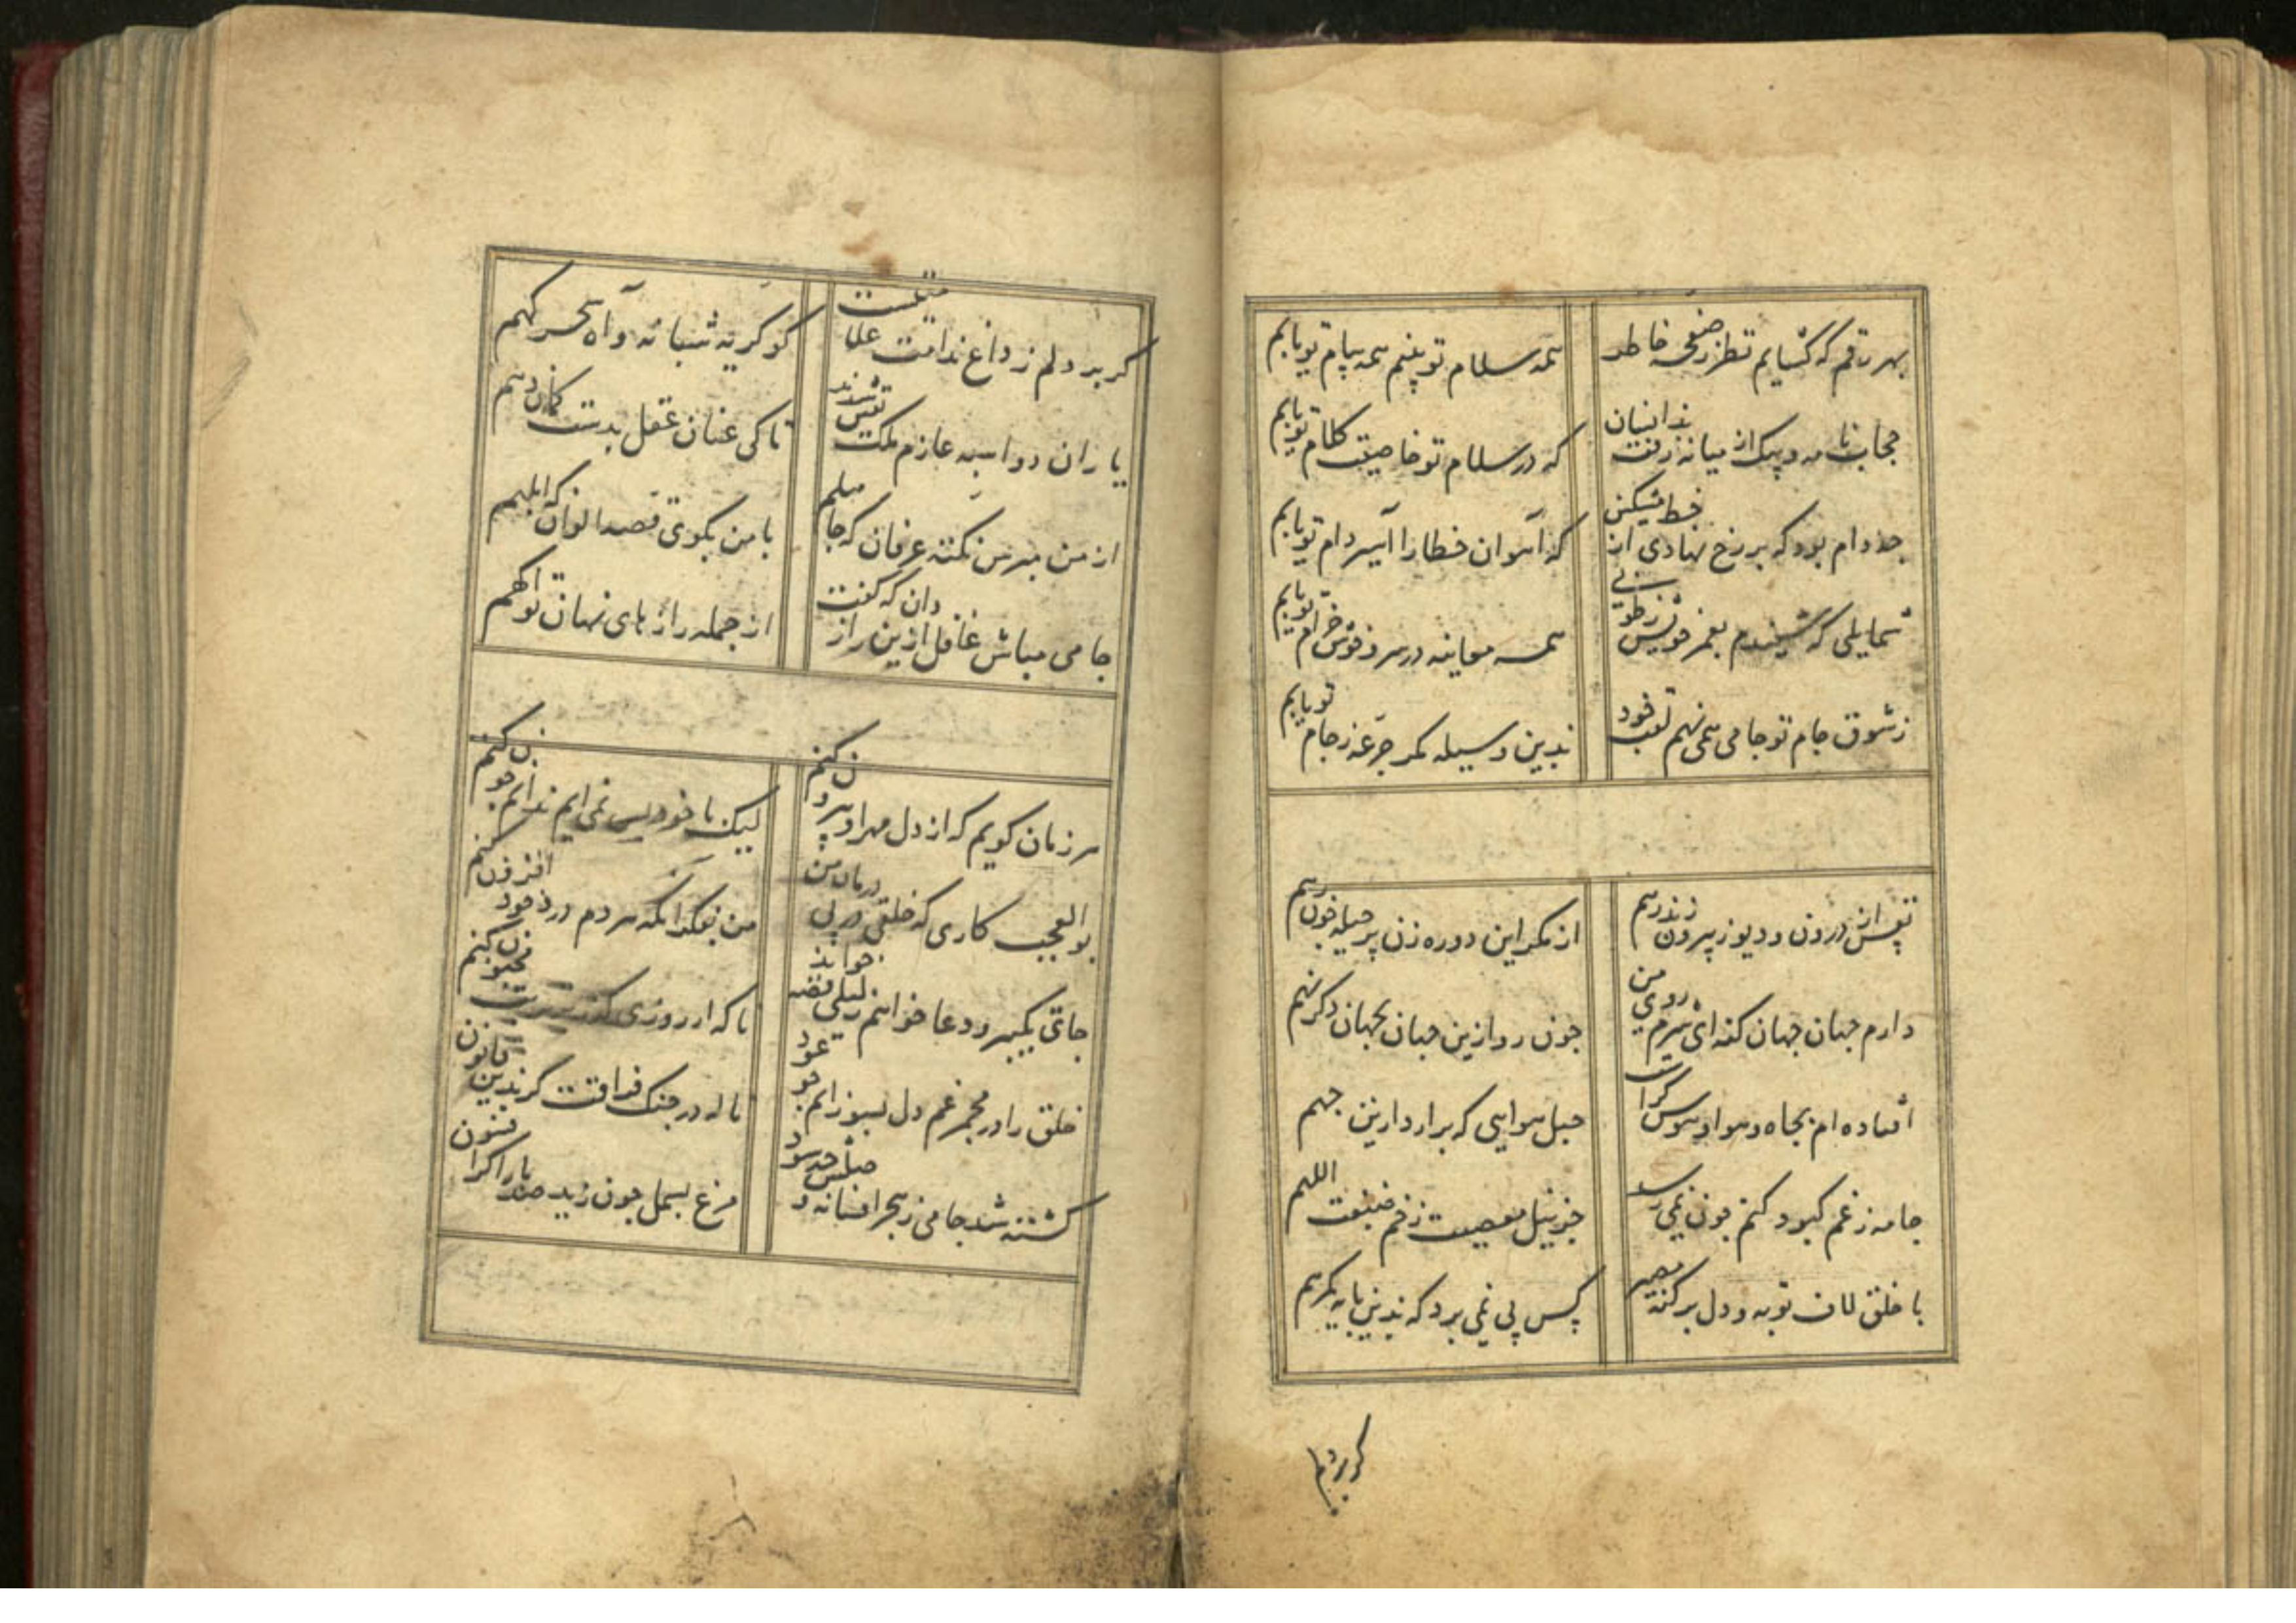 بهر رقم که گشایم نظر ز صفحه خاطر
همه سلام تو بینم همه پیام تو یابم
حجاب نامه و پیک از میانه رفت
که در سلام تو خاصیت کلام تو یابم
چه دام بود که بر رخ نهادی از خط مشکین
که آهوان خطا را اسیر دام تو یابم
شمایلی که شنیدم بعمر خویش ز طوبی
همه معاینه در سرو خوش خرام تو یابم
ز شوق جام تو جامی همی نهم لقب خود
بدین وسیله مگر جرعه ز جام تو یابم
نفس از درون و دیو ز بیرون زند رهم
از مکر این دو رهزن پر حیله چون رهم
دارم جهان جهان گنه ای شرم روی من
چون رو ازین جهان بجهان دگر نهم
افتاده ام بچاه هوا و هوس کراست
حبل هوایی که برارد ازین چهم
جامه ز غم کبود کنم چون نمی رسد
جز نیل معصیت ز خم صبغت اللهم
با خلق لاف توبه و دل بر گنه مصر
کس پی نمی برد که بدین پایه گمرهم
گر بر دلم
گر بر دلم ز داغ ندامت علامتیست
کو گریه شبانه و آه سحر گهم
یاران دو اسبه عازم ملک یقین شدند
تا کی عنان عقل بدست گمان دهم
از من مپرس نکته عرفان که جاهلم
با من بگوی قصه الوان که ابلهم
جامی مباش غافل ازین رازدان که گفت
از جمله رازهای نهان تو آگهم
هر زمان گویم که از دل مهر او بیرون کنم
لیک با خود بس نمی ایم ندانم چون کنم
بوالعجب کاری که خلقی در پی درمان من
من بفکر انکه هر دم درد خود افزون کنم
خلق را در مجمر غم دل بسوزانم چو عود
ناله در چنک فراقت گر بدین قانون
کشته شد جامی ز هجر افسانه و
مرغ بسمل چون زید صد بار اگر افسون